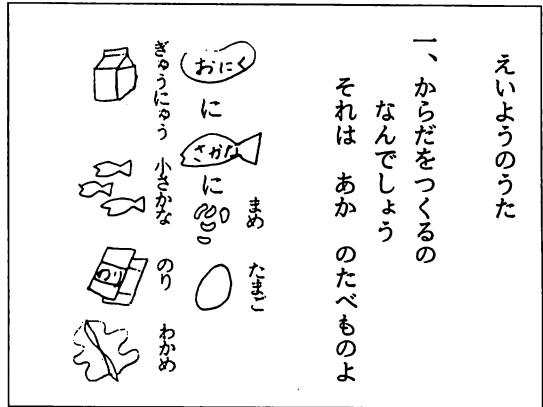 えいようのうた
一、からだをつくるの
なんでしょう
それは あか のたべものよ
まめ たまご
おにく に さかな に
ぎゅうにゅう 小さかな のり わかめ
のり